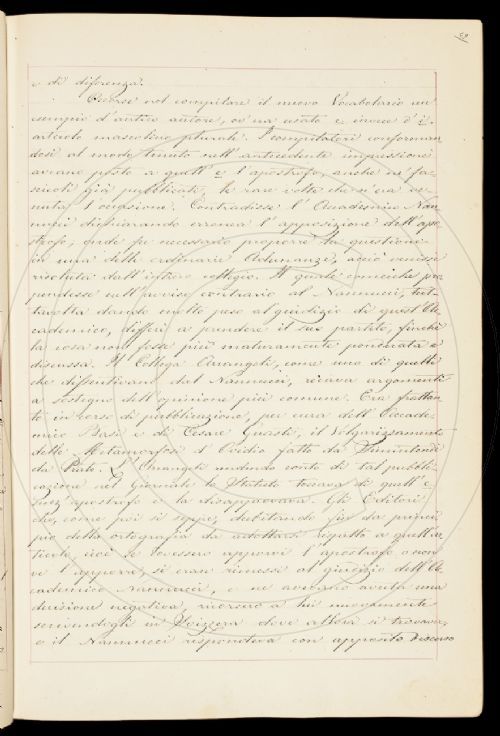 59
e di diferenza.
Occorse nel compilare il nuovo Vocabolario un
esempio d'antico autore, ov'era usato e invece d'i
articolo mascolino plurale. I compilatori conforman
dosi al modo tenuto nell'antecedente impressione
aveano posto a quell'e l'apostrofo, anche ne' fa-
scicoli già pubblicati, le rare volte che n'era ve-
nuta l'occasione. Contradisse l'Accademico Nan-
nucci dichiarando erronea l'apposizione dell'apo-
strofo, onde fu necessario proporre la questione
in una delle ordinarie Adunanze, acciò venisse
risoluta dall'intero collegio. Il quale comechè pro
pendesse nell'avviso contrario al Nannucci, tut-
tavolta dando molto peso al giudizio di quest'Ac
cademico, differì a prendere il suo partito, finchè
la cosa non fosse più maturamente ponderata e
discussa. Il Collega Arcangeli, come uno di quelli
che dissentivano dal Nannucci, recava argomenti
a sostegno dell'opinione più comune. Era frattan-
to in corso di pubblicazione, per cura dell'Accade-
mico Basi e di Cesare Guasti, il Volgarizzamento
delle Metamorfosi d'Ovidio fatto da Simintendi
da Prato. L'Arcangeli rendendo conto di tal pubbli-
cazione nel Giornale lo Statuto toccava di quell'e
senz'apostrofo e la disapprovava. Gli Editori
che, come poi si seppe, dubitando fin da princi
pio della ortografia da adottarsi rispetto a quell'ar
ticolo, cioè se dovessero apporvi l'apostrofo o non
ve l'apporre, si eran rimessi al giudizio dell'Ac
cademico Nannucci, e ne avevano avuta una
decisione negativa, ricorsero a lui nuovamente
scrivendogli in Svizzera dove allora si trovava,
e il Nannucci rispondeva con apposito Discorso